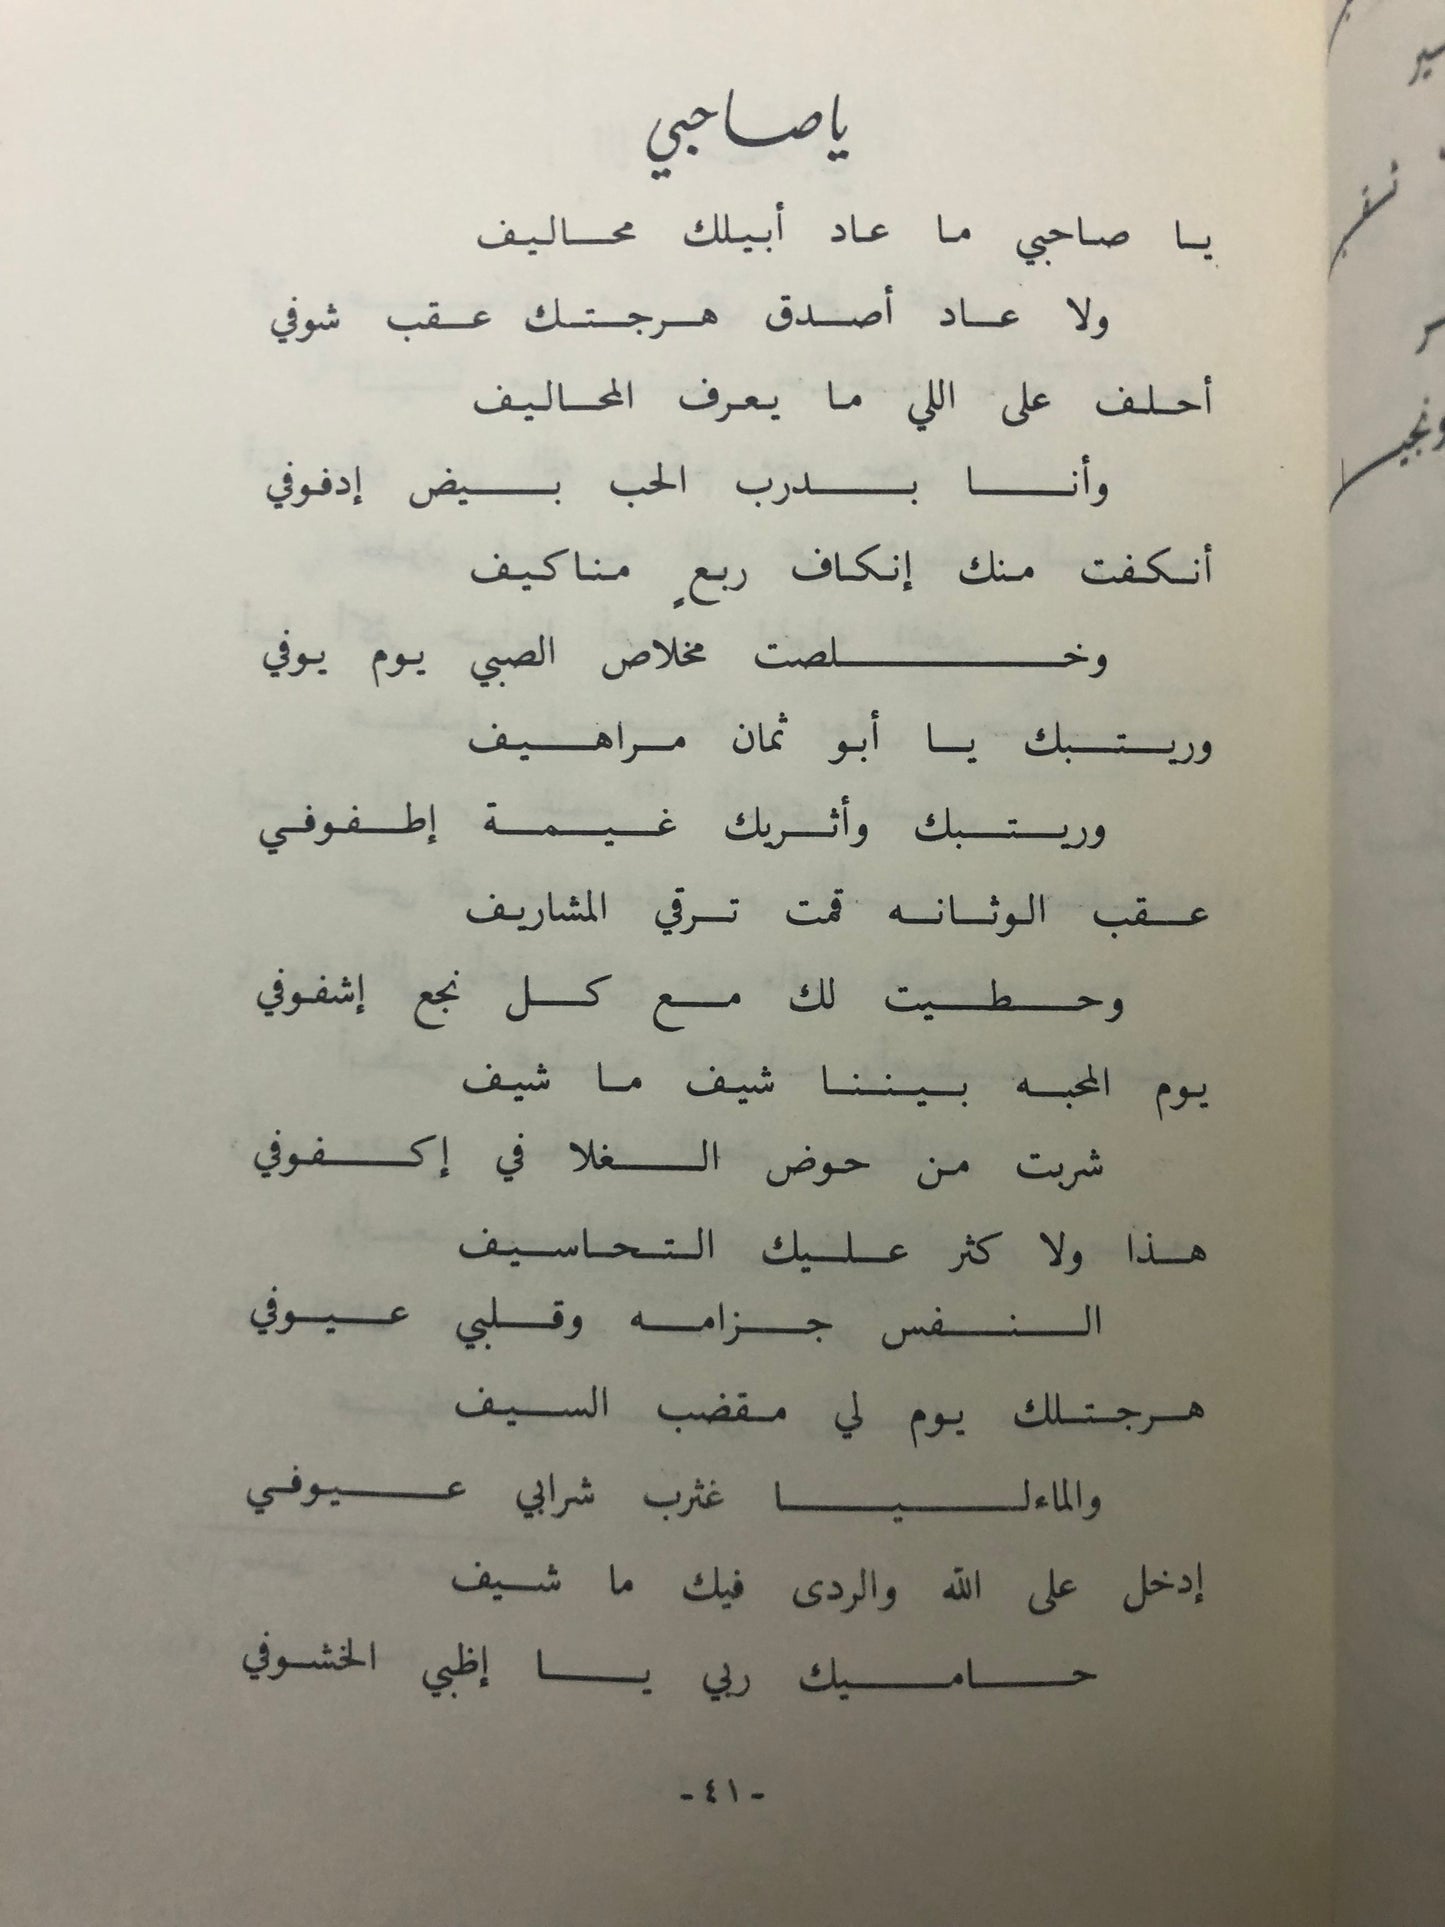 ياصاحبي
يا صاحبي ما عاد أبيلك محاليف
ولا عاد أصدق هرجتك عقب شوفي
أحلف على اللي ما يعرف المحاليف
وأنا بدرب الحب بيض إدفوفي
أنكفت منك إنكاف ربعٍ مناكيف
وخلصت مخلاص الصبي يوم يوفي
وريتبك يا أبو ثمان مراهيف
وريتبك وأثريك غيمة إطفوفي
عقب الوثانه قمت ترقي المشاريف
وحطيت لك مع كل نجع إشفوفي
يوم المحبه بيننا شيف ما شيف
شربت من حوض الغلا في إكفوفي
هذا ولا كثر عليك التحاسيف
النفس جزامه وقلبي عيوفي
هرجتلك يوم لي مقضب السيف
والماءليا غثرب شرابي عيوفي
إدخل على الله والردى فيك ما شيف
حاميك ربي يا إظبي الخشوفي
-٤١-